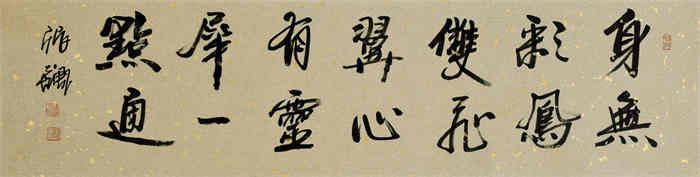 身無
彩鳳
雙飛
翼心
有靈
犀一
點通